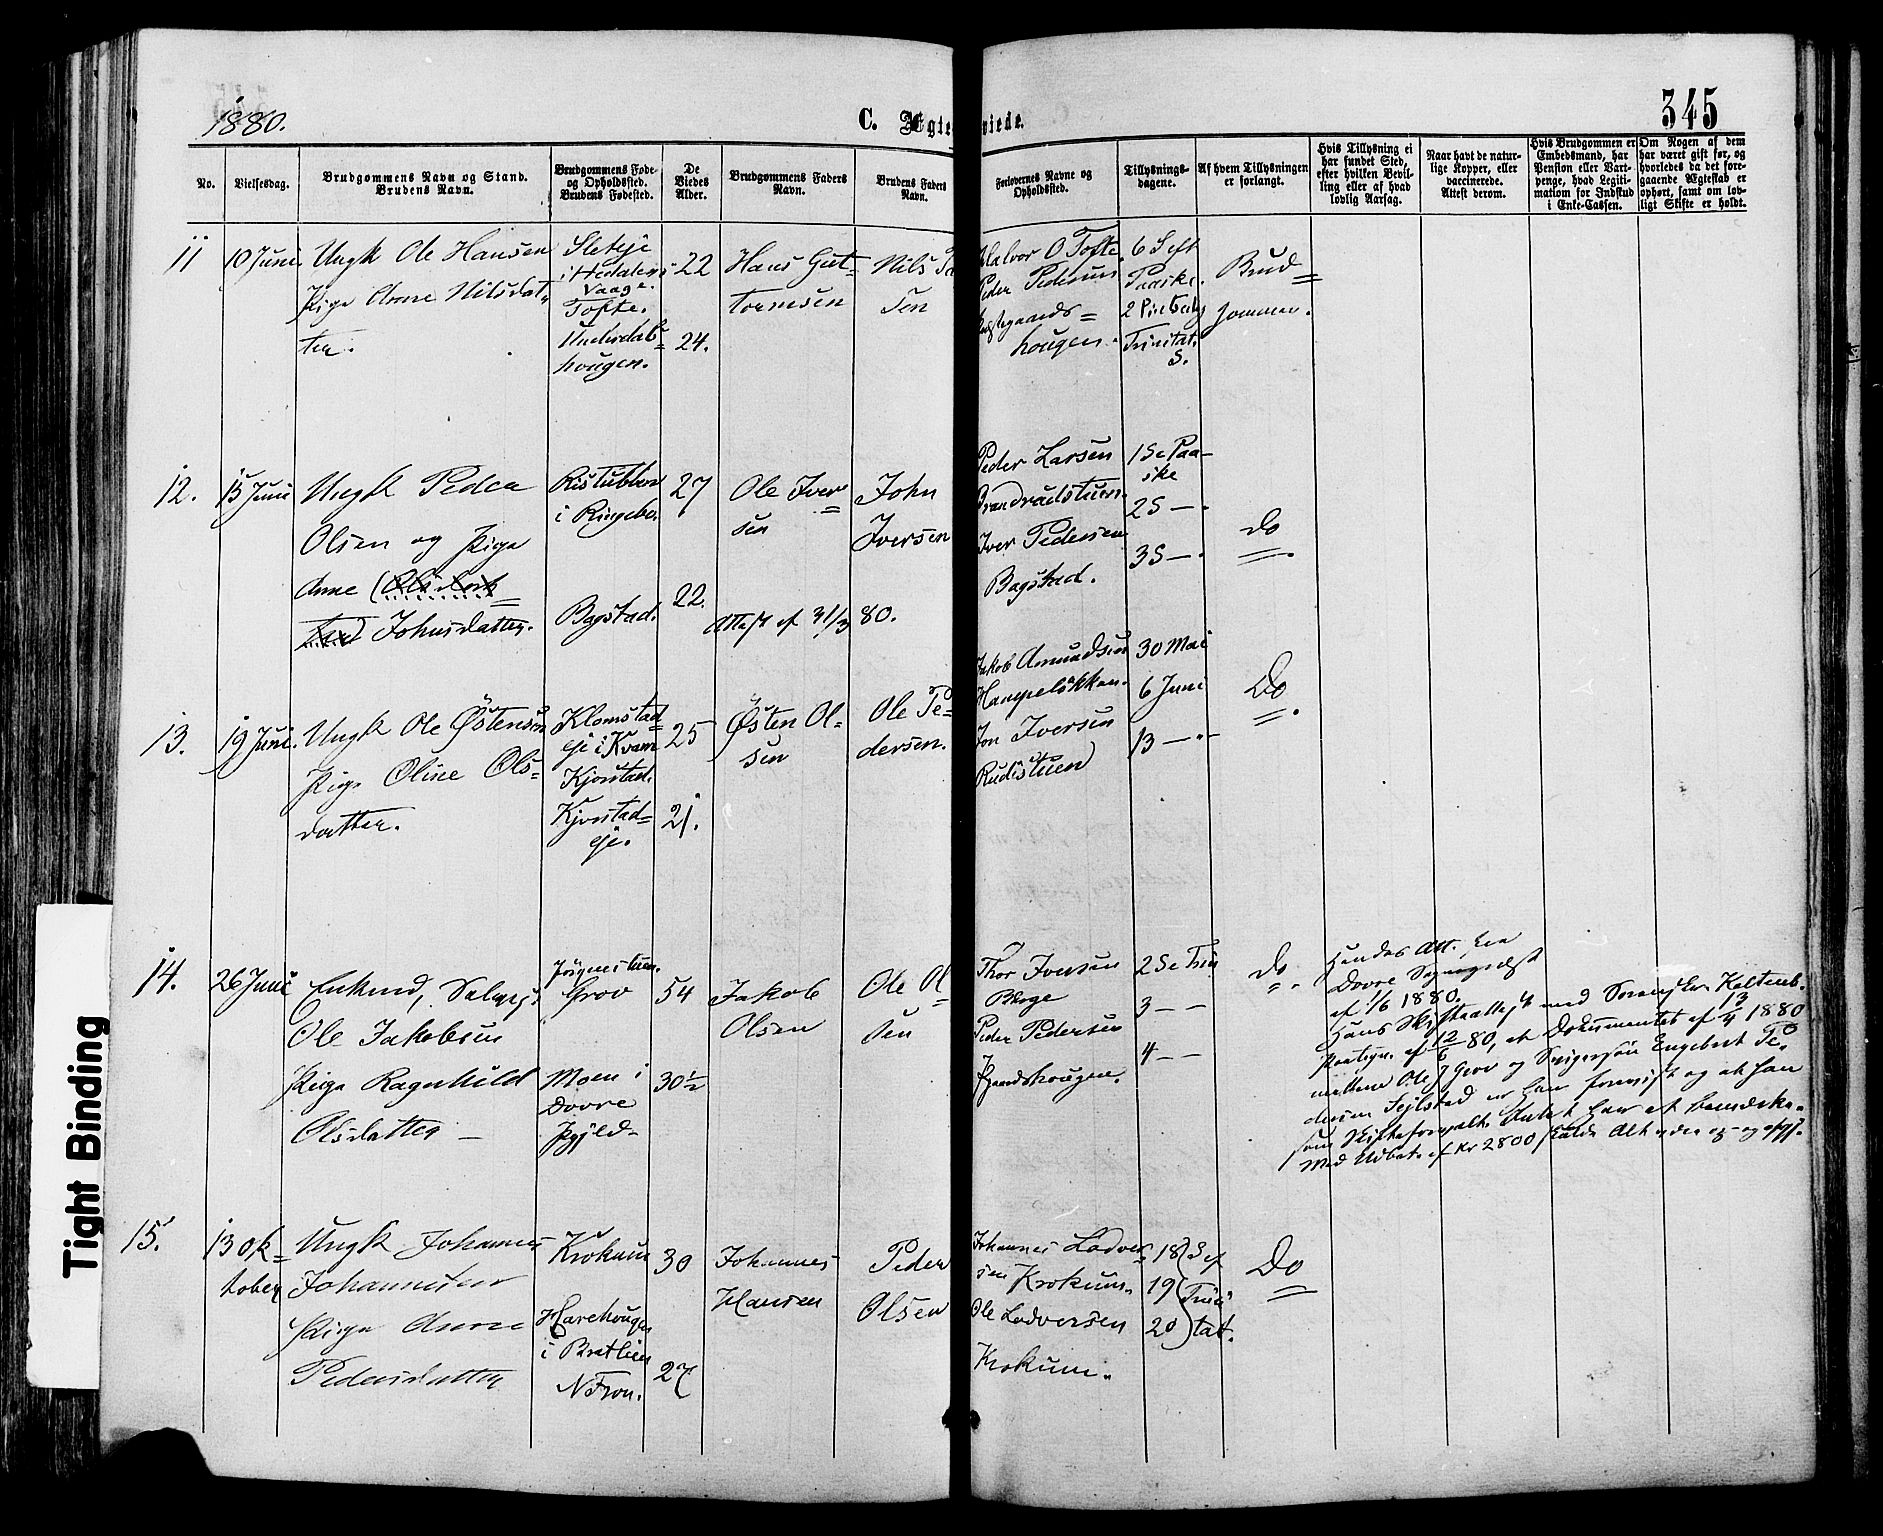 1880.
C. Ægte viede.
345
No.
Vielsesdag.
Brudgommens Navn og Stand.
Brudens Navn.
Brudgommens Føde-
og Opholdssted.
Brudens Fødested.
De
Viedes
Alder.
Brudgommens Faders
Navn.
Brudens Faders
Navn.
Forlovernes Navne og
Opholdssted.
Tillysnings-
dagene.
Af hvem Tillysningen
er forlangt.
Hvis Tillysning ei
har fundet Sted,
efter hvilken Bevil-
ling eller af hvad
lovlig Aarsag.
Naar havt de natur-
lige Kopper, eller
vaccinerede.
Attest derom.
Hvis Brudgommen er
Embedsmand, har
Pension eller Vart-
penge, hvad Legiti-
mation for Indskud
i Enke-Cassen.
Om Nogen af dem
har været gift før, og
hvorledes da det fore-
gaaende Ægteskab er
ophørt, samt om lov-
ligt Skifte er holdt.
11
10 Juni
Ungk Ole Hansen
Pige Anne Nilsdat-
ter.
Sleteje
i Hedalen i
Vaage.
Tofte.
hougen.
22
24.
Hans Gut-
tormsen
Nils
Halvor O Tofte
Peder Pedersen
hougen.
6 S eft
Paaske.
Trinitat.
S.
Brud
gommen.
12.
15 Juni
Ungk Peder
Olsen og Pige
Anne
Johnsdatter.
Ristubben
i Ringebo.
Bagstad.
27
22.
Ole Iver
sen
John
Iversen
Attest af 31/3 80.
Peder Larsen
Brandvoldstuen.
Iver Pedersen
Bagstad.
1 S e Paa-
ske
2 S — .
3 S — .
Do
13.
19 Juni.
Ungk Ole Østensen
Pige Oline Ols-
datter.
Klomstad
eje i Kvam
Kjorstad.
Kjorstad-
eje.
25
21.
Østen Ol-
sen
Ole Pe-
dersen.
Jakob Amundsen
Hampeløkken.
Jon Iversen
Rudistuen
30 Mai
6 Juni
13 — . -
Do
14.
26 Juni
Enkmd, Selvejr
Ole Jakobsen
Pige Ragnhild
Olsdatter —
Grov
Moen i
Dovre
54
30 1/2
Jakob
Olsen
Ole Ol
sen
Thor Iversen
Berge
Peder Pedersen
2 S e Trin
3 — —
4 — —
Do
Hendes Att. fra
Dovre Sognepræst
af 1/6 1880.
Hans Skifteattest med Sorenskr. Koltenb.
paategn. af 12/6 80, at Dokumentet af 13/4 1880
mellem Ole J Grov og Svigersøn Engebret Pe-
dersen Sejlstad er ham forevist og at han
som Skifteforvalter Intet har at bemærke.
15.
13 Ok-
tober
Ungk Johannes
Johannesen
Pige Anne
Pedersdatter
Krokum
Harehougen
i Bratlien
N Fron.
30
27
Johannes
Hansen
Peder
Olsen
Johannes Lodver
sen Krokum.
Ole Lodversen
Krokum.
18 S ef
19 Trini
20 tat.
Do
Tight Binding